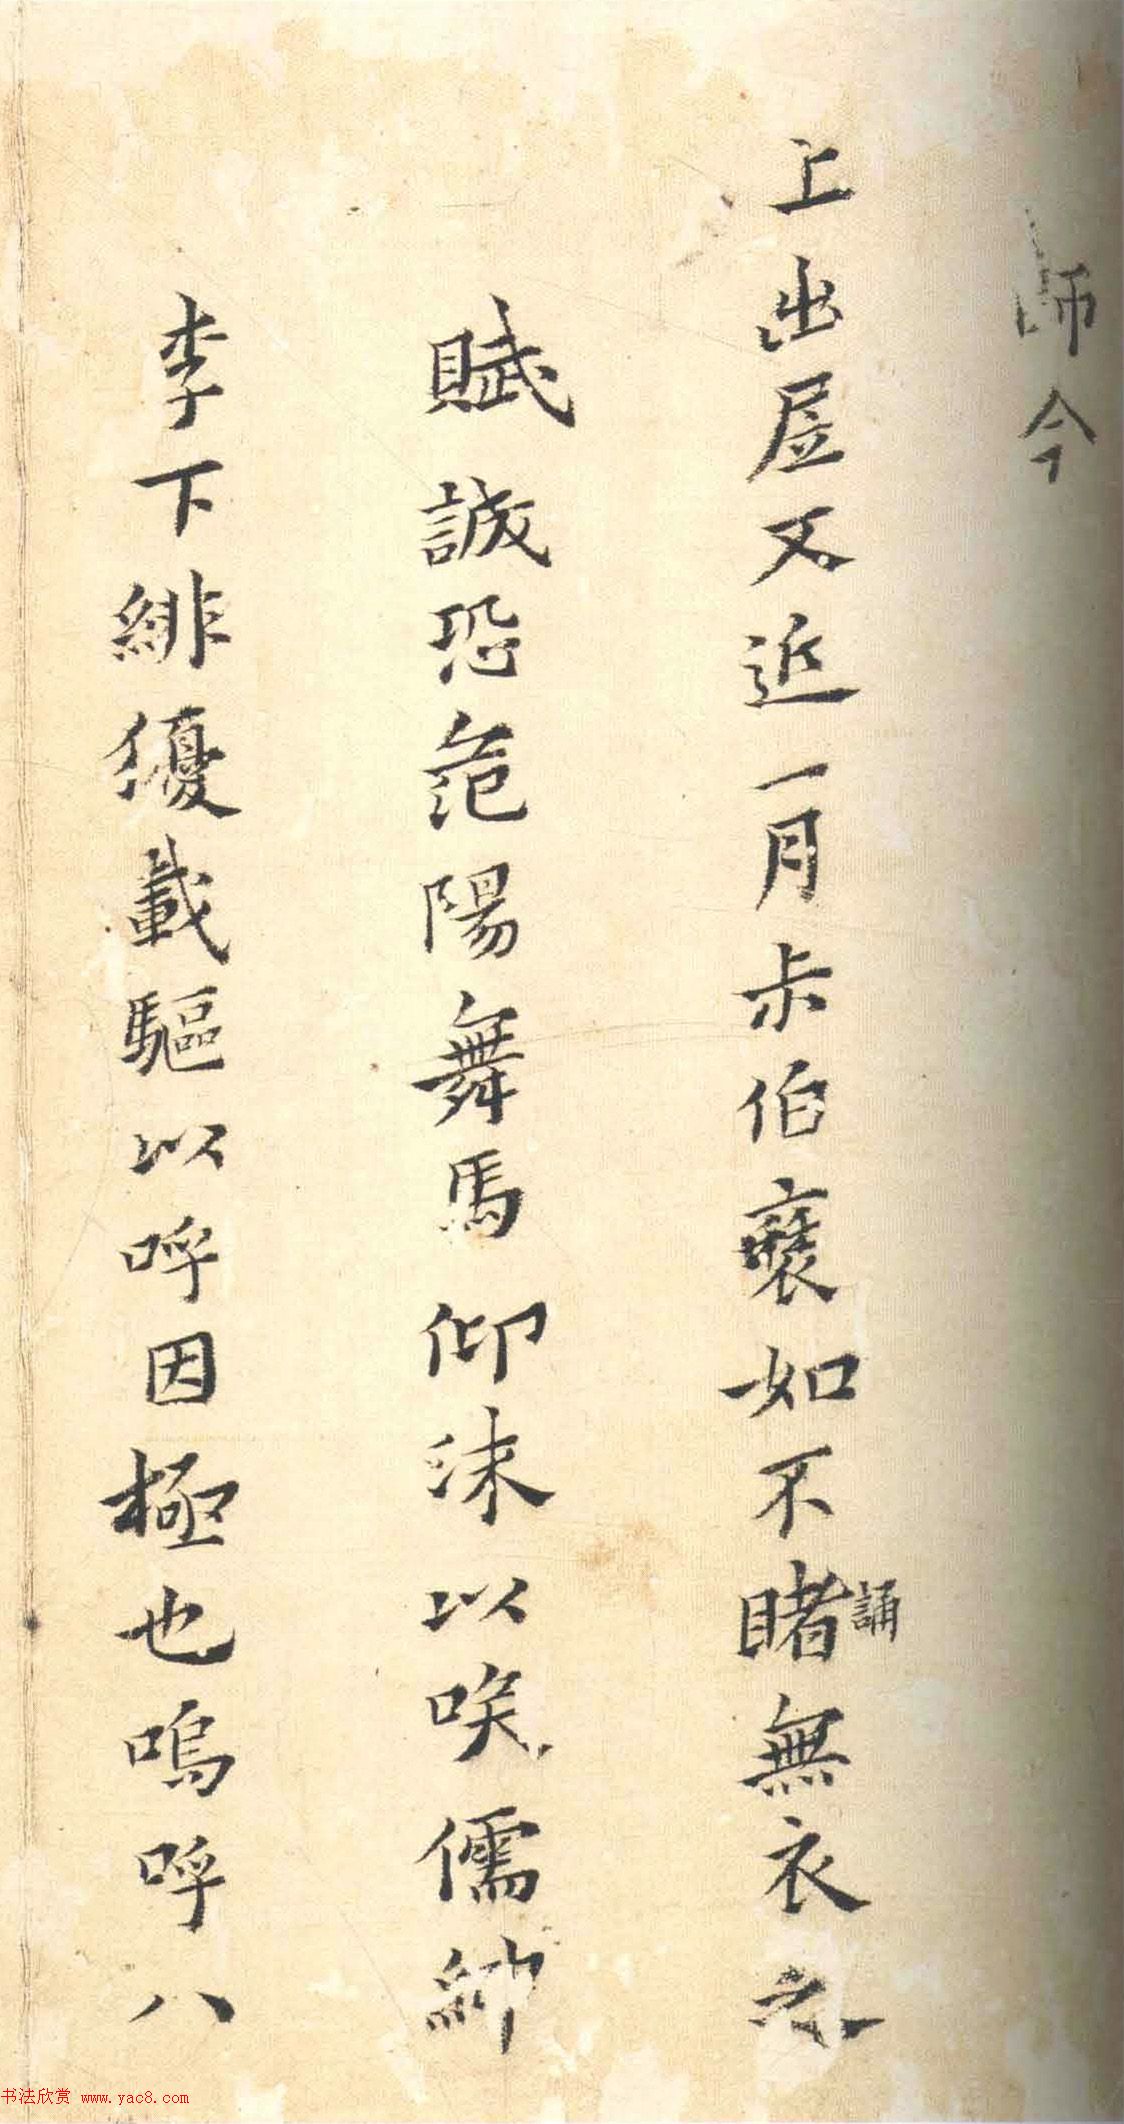 師今
上出屋又近一月尗伯裒如不睹誦無衣之
賦誠恐茝陽舞馬仰沫以唉儒紳
李下緋優載驅以呼因極也嗚呼八
书法欣赏 www.yac8.com